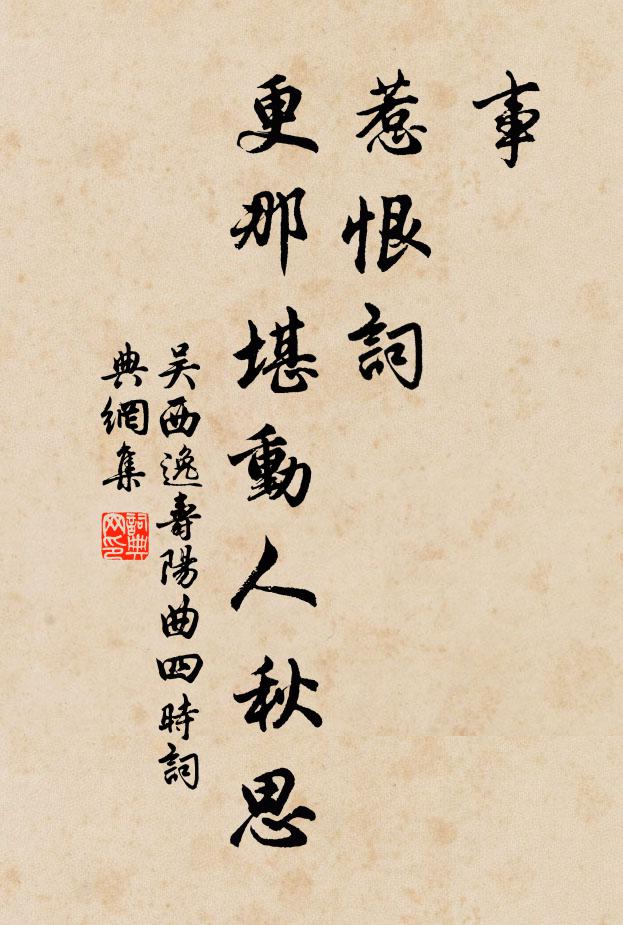 事
惹恨詞
更那堪動人秋思
吴西逸壽陽曲四時詞
典網集
詞典网印